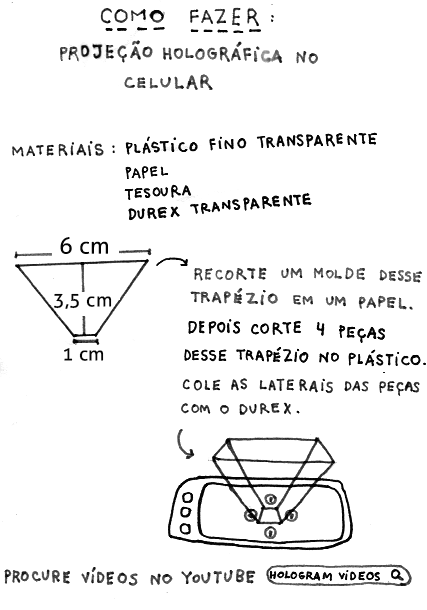 COMO FAZER:
PROJEÇÃO HOLOGRÁFICA NO
CELULAR
MATERIAIS: PLÁSTICO FINO TRANSPARENTE
PAPEL
TESOURA
DUREX TRANSPARENTE
6 cm
3,5 cm
1 cm
RECORTE UM MOLDE DESSE
TRAPÉZIO EM UM PAPEL.
DEPOIS CORTE 4 PEÇAS
DESSE TRAPÉZIO NO PLÁSTICO.
COLE AS LATERAIS DAS PEÇAS
COM O DUREX.
PROCURE VÍDEOS NO YOUTUBE HOLOGRAM VIDEOS